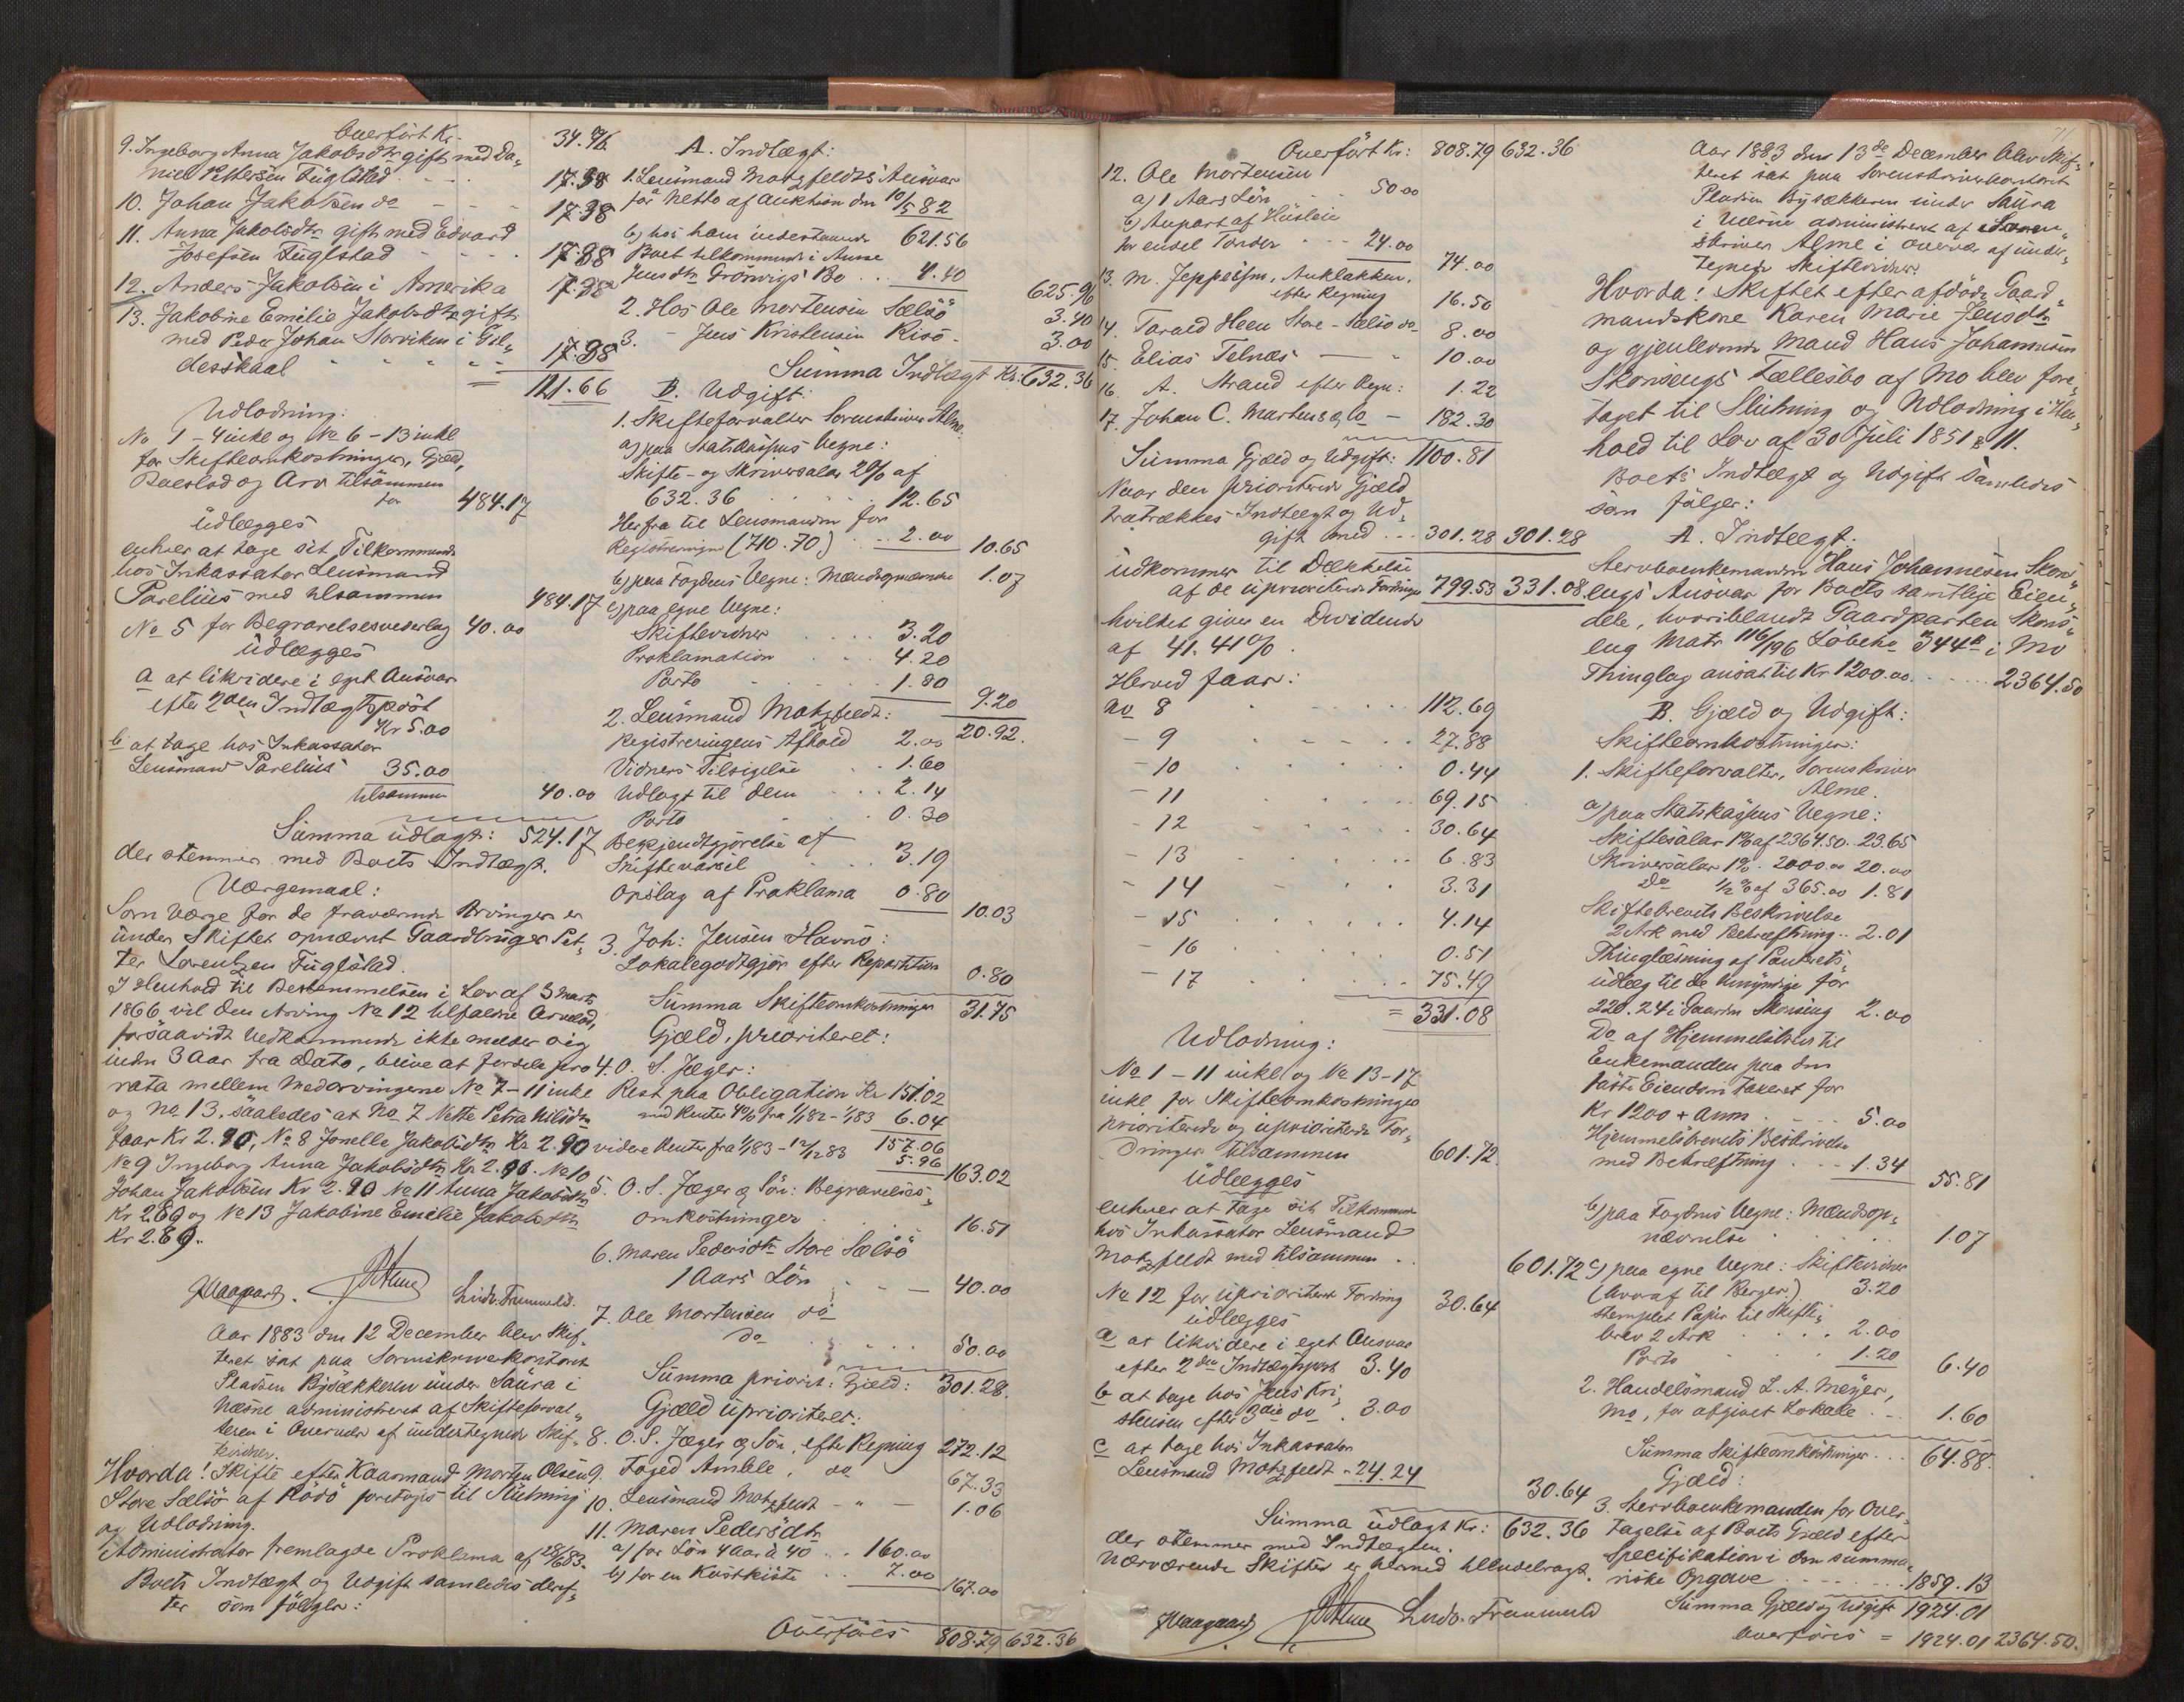 Overført Kr.
34.76
9. Ingeborg Anna Jakobsdtr gift med Da„
niel Pettersen Fuglstad - - -
17.38
10. Johan Jakobsen do - - -
17.38
11. Anna Jakobsdtr gift med Edvard
Josefsen Fuglstad - - - -
17.38
12. Anders Jakobsen i Amerika
17.38
13. Jakobine Emilie Jakobsdtr gift
med Peder Johan Storviken i Gil„
desskaal
17.38
= 121.66
Udlodning:
No 1 - 4 inkl og No 6 - 13 inkl
for Skifteomkostninger, Gjæld,
Boeslod og Arv tilsammen
for 484.17
udlægges
enhver at tage sit Tilkommende
hos Inkassator Lensmand
Parelius med tilsammen
484.17
No 5 for Begravelsesvederlag 40.00
udlægges
a at likvidere i eget Ansvar
efter 2den Indtægtspost
Kr 5.00
b at tage hos Inkassator
Lensmand Parelius 35.00
tilsammen 40.00
Summa udlagt: 524.17
der stemmer med Boets Indtægt.
Værgemaal:
Som Værge for de fraværende Arvinger er
under Skiftet opnævnt Gaardbruger Pet„
ter Lorentzen Fuglstad.
I Henhold til Bestemmelsen i Lov af 3 Marts
1866 vil den Arving No 12 tilfaldne Arvelod,
forsaavidt Vedkommende ikke melder sig
inden 3 Aar fra Dato, blive at fordele pro
rata mellem Medarvingerne No 7 - 11 inkl
og No 13, saaledes at No 7 Nette Petra Nilsdtr
faar Kr 2.90, No 8 Jonelle Jakobsdtr Kr 2.90
No 9 Ingeborg Anna Jakobsdtr Kr 2.90. No 10
Johan Jakobsen Kr 2.90 No 11 Anna Jakobsdtr
Kr 2.89 og No 13 Jakobine Emelie Jakobsdtr
Kr 2.89.
JAlme
Aar 1883 den 12 December blev Skif„
teret sat paa Sorenskriverkontoret
Pladsen Bysækkeren under Saura i
Næsne administreret af Skifteforval„
teren i Overvær af undertegnede Skif„
tevidner.
Hvorda! Skifte efter Kaarmand Morten Olsen
Store Selsö af Rödö foretages til Slutning
og Udlodning.
Administrator fremlagde Proklama af 28/6 83.
Boets Indtægt og Udgift samledes deref„
ter som følger:
A. Indtægt:
1. Lensmand Motzfeldts Ansvar
for Netto af Auktion den 10/5 82
b) hos ham indestaaende 621.56
Boet tilkommende i Anne
Jensdtr Grönvigs Bo . . . 4.40
625.96
2. Hos Ole Mortensen Selsö
3.40
3. - Jens Kristensen Risö -
3.00
Summa Indtægt Kr. 632.36
B. Udgift:
1. Skifteforvalter Sorenskriver Alme.
a) paa Statskassens Vegne:
Skifte- og Skriversalær 2% af
632.36 12.65
Herfra til Lensmanden for
Registreringen (710.70) . . 2.00
10.65
b) paa Fogdens Vegne: Mændsopnævnelse 1.07
c) paa egne Vegne:
Skiftevidner . . . . 3.20
Proklamation . . 4.20
Porto - - - - 1.80
9.20
20.92.
2. Lensmand Motzfeldt:
Registreringens Afhold 2.00
Vidners Tilsigelse . . 1.60
Udlagt til dem . . . 2.14
Porto - 0.30
Bekjendtgjörelse af
Skiftevarsel . . . 3.19
Opslag af Proklama 0.80
10.03
3. Joh: Jensen Havnö:
Lokalegodtgjör efter Repartition 0.80
Summa Skifteomkostninger 31.75
Gjæld, prioriteret:
4. O. S. Jæger:
Rest paa Obligation Kr 151.02
med Renter 4% fra 1/1 82 - 1/1 83 6.04
157.06
videre Renter fra 1/1 83 - 12/12 83 5.96
163.02
5. O. S. Jæger & Sön: Begravelses„
omkostninger
16.51
6. Maren Pedersdtr Store Selsö
1 Aars Lön . . - 40.00
7. Ole Mortensen do
do . . . . 50.00
Summa priorit: Gjæld: 301.28.
Gjæld uprioriteret:
8. O. S. Jæger & Sön, efter Regning 272.12
9. Foged Amble, do 67.33
10. Lensmand Motzfeldt - „ - 1.06
11. Maren Pedersdtr
a) for Lön 4 Aar à 40 . . 160.00
b) for en Kostkiste . . 7.00
167.00
Overføres 808.79 632.36
71
Overført Kr: 808.79 632.36
12. Ole Mortensen
a) 1 Aars Lön - 50.00
b) Anpart af Husleie
24.00
74.00
13. M. Jeppesen,
efter Regning 16.50
14. Tarald Heen Store-Selsö do 8.00
15. Elias Telnæs - - 10.00
16. A. Strand efter Regn: 1.22
17. Johan C. Martens & Co - 182.30
Summa Gjæld og Udgift: 1100.81
Naar den prioriterede Gjæld
fratrækkes Indtægt og Ud„
gift med . . . 301.28 301.28
udkommer til Dækkelse
af de uprioriterede Fordringer 799.53 331.08
hvilket giver en Dividende
af 41.41%.
Herved faar:
No 8 . . . . 112.69
- 9 - - - - 27.88
- 10 0.44
- 11 69.15
- 12 30.64
- 13 6.83
- 14 3.31
- 15 4.14
- 16 0.51
- 17 75.49
= 331.08
Udlodning:
No 1 - 11 inkl og No 13-17
inkl for Skifteomkostninger
prioriterede og uprioriterede For„
dringer tilsammen 601.72
udlægges
enhver at tage sit Tilkommende
hos Inkassator Lensmand
Motzfeldt med tilsammen . .
601.72
No 12 for uprioriteret Fordring 30.64
udlægges
a at likvidere i eget Ansvar
efter 2den Indtægtspost 3.40
b at tage hos Jens Kri„
stensen efter 3die do . 3.00
c at tage hos Inkassator
Lensmand Motzfeldt - 24.24
30.64
Summa udlagt Kr: 632.36
der stemmer med Indtægten.
Nærværende Skifte er hermed tilendebragt.
JAlme
Aar 1883 den 13de December blev Skif„
teret sat paa Sorenskriverkontoret
Pladsen Bysækkeren under Saura
i Næsne administreret af Soren„
skriver Alme i Overvær af under„
tegnede Skiftevidner.
Hvorda! Skiftet efter afdøde Gaard„
mandskone Karen Marie Jensdtr
og gjenlevende Mand Hans Johannesen
Skonsengs Fællesbo af Mo blev fore„
taget til Slutning og Udlodning i Hen„
hold til Lov af 30 Juli 1851 § 11.
Boets Indtægt og Udgift samledes
som følger:
A. Indtægt.
Stervboenkemanden Hans Johannesen Skons„
engs Ansvar for Boets samtlige Eien„
dele, hvoriblandt Gaardparten Skons„
eng Matr 116/196 Löbene 344B i Mo
Thinglag ansat til Kr 1200.00 . . . . 2364.50
B. Gjæld og Udgift:
Skifteomkostninger:
1. Skifteforvalter, Sorenskriver
Alme.
a) paa Statskassens Vegne:
Skiftesalær 1% af 2364.50. 23.65
Skriversalær 1% . 2000.00 20.00
Do 1/2% af 365.00 1.81
Skiftebrevets Beskrivelse
2 Ark med Bekræftning . . 2.01
Thinglæsning af Panterets„
udlæg til de Umyndige for
220.24 i Gaarden Skonseng 2.00
Do af Hjemmelsbrev til
Enkemanden paa den
faste Eiendom taxeret for
Kr 1200 + . . - 5.00
Hjemmelsbrevets Beskrivelse
med Bekræftning . . - 1.34
55.81
b) paa Fogdens Vegne: Mændsop„
nævnelse . . 1.07
c) paa egne Vegne: Skiftevidner
(hvoraf til Berger) 3.20
stemplet Papir til Skifte„
brev 2 Ark . . . . 2.00
Porto 1.20
6.40
2. Handelsmand L. A. Meyer,
Mo, for afgivet Lokale . . - 1.60
Summa Skifteomkostninger . . . 64.88.
Gjæld:
3. Stervboenkemanden for Over„
tagelse af Boets Gjæld efter
Specifikation i den summa„
riske Opgave - - - - . . . 1859.13
Summa Gjæld og Udgift 1924.01
Overføres = 1924.01 2364.50.